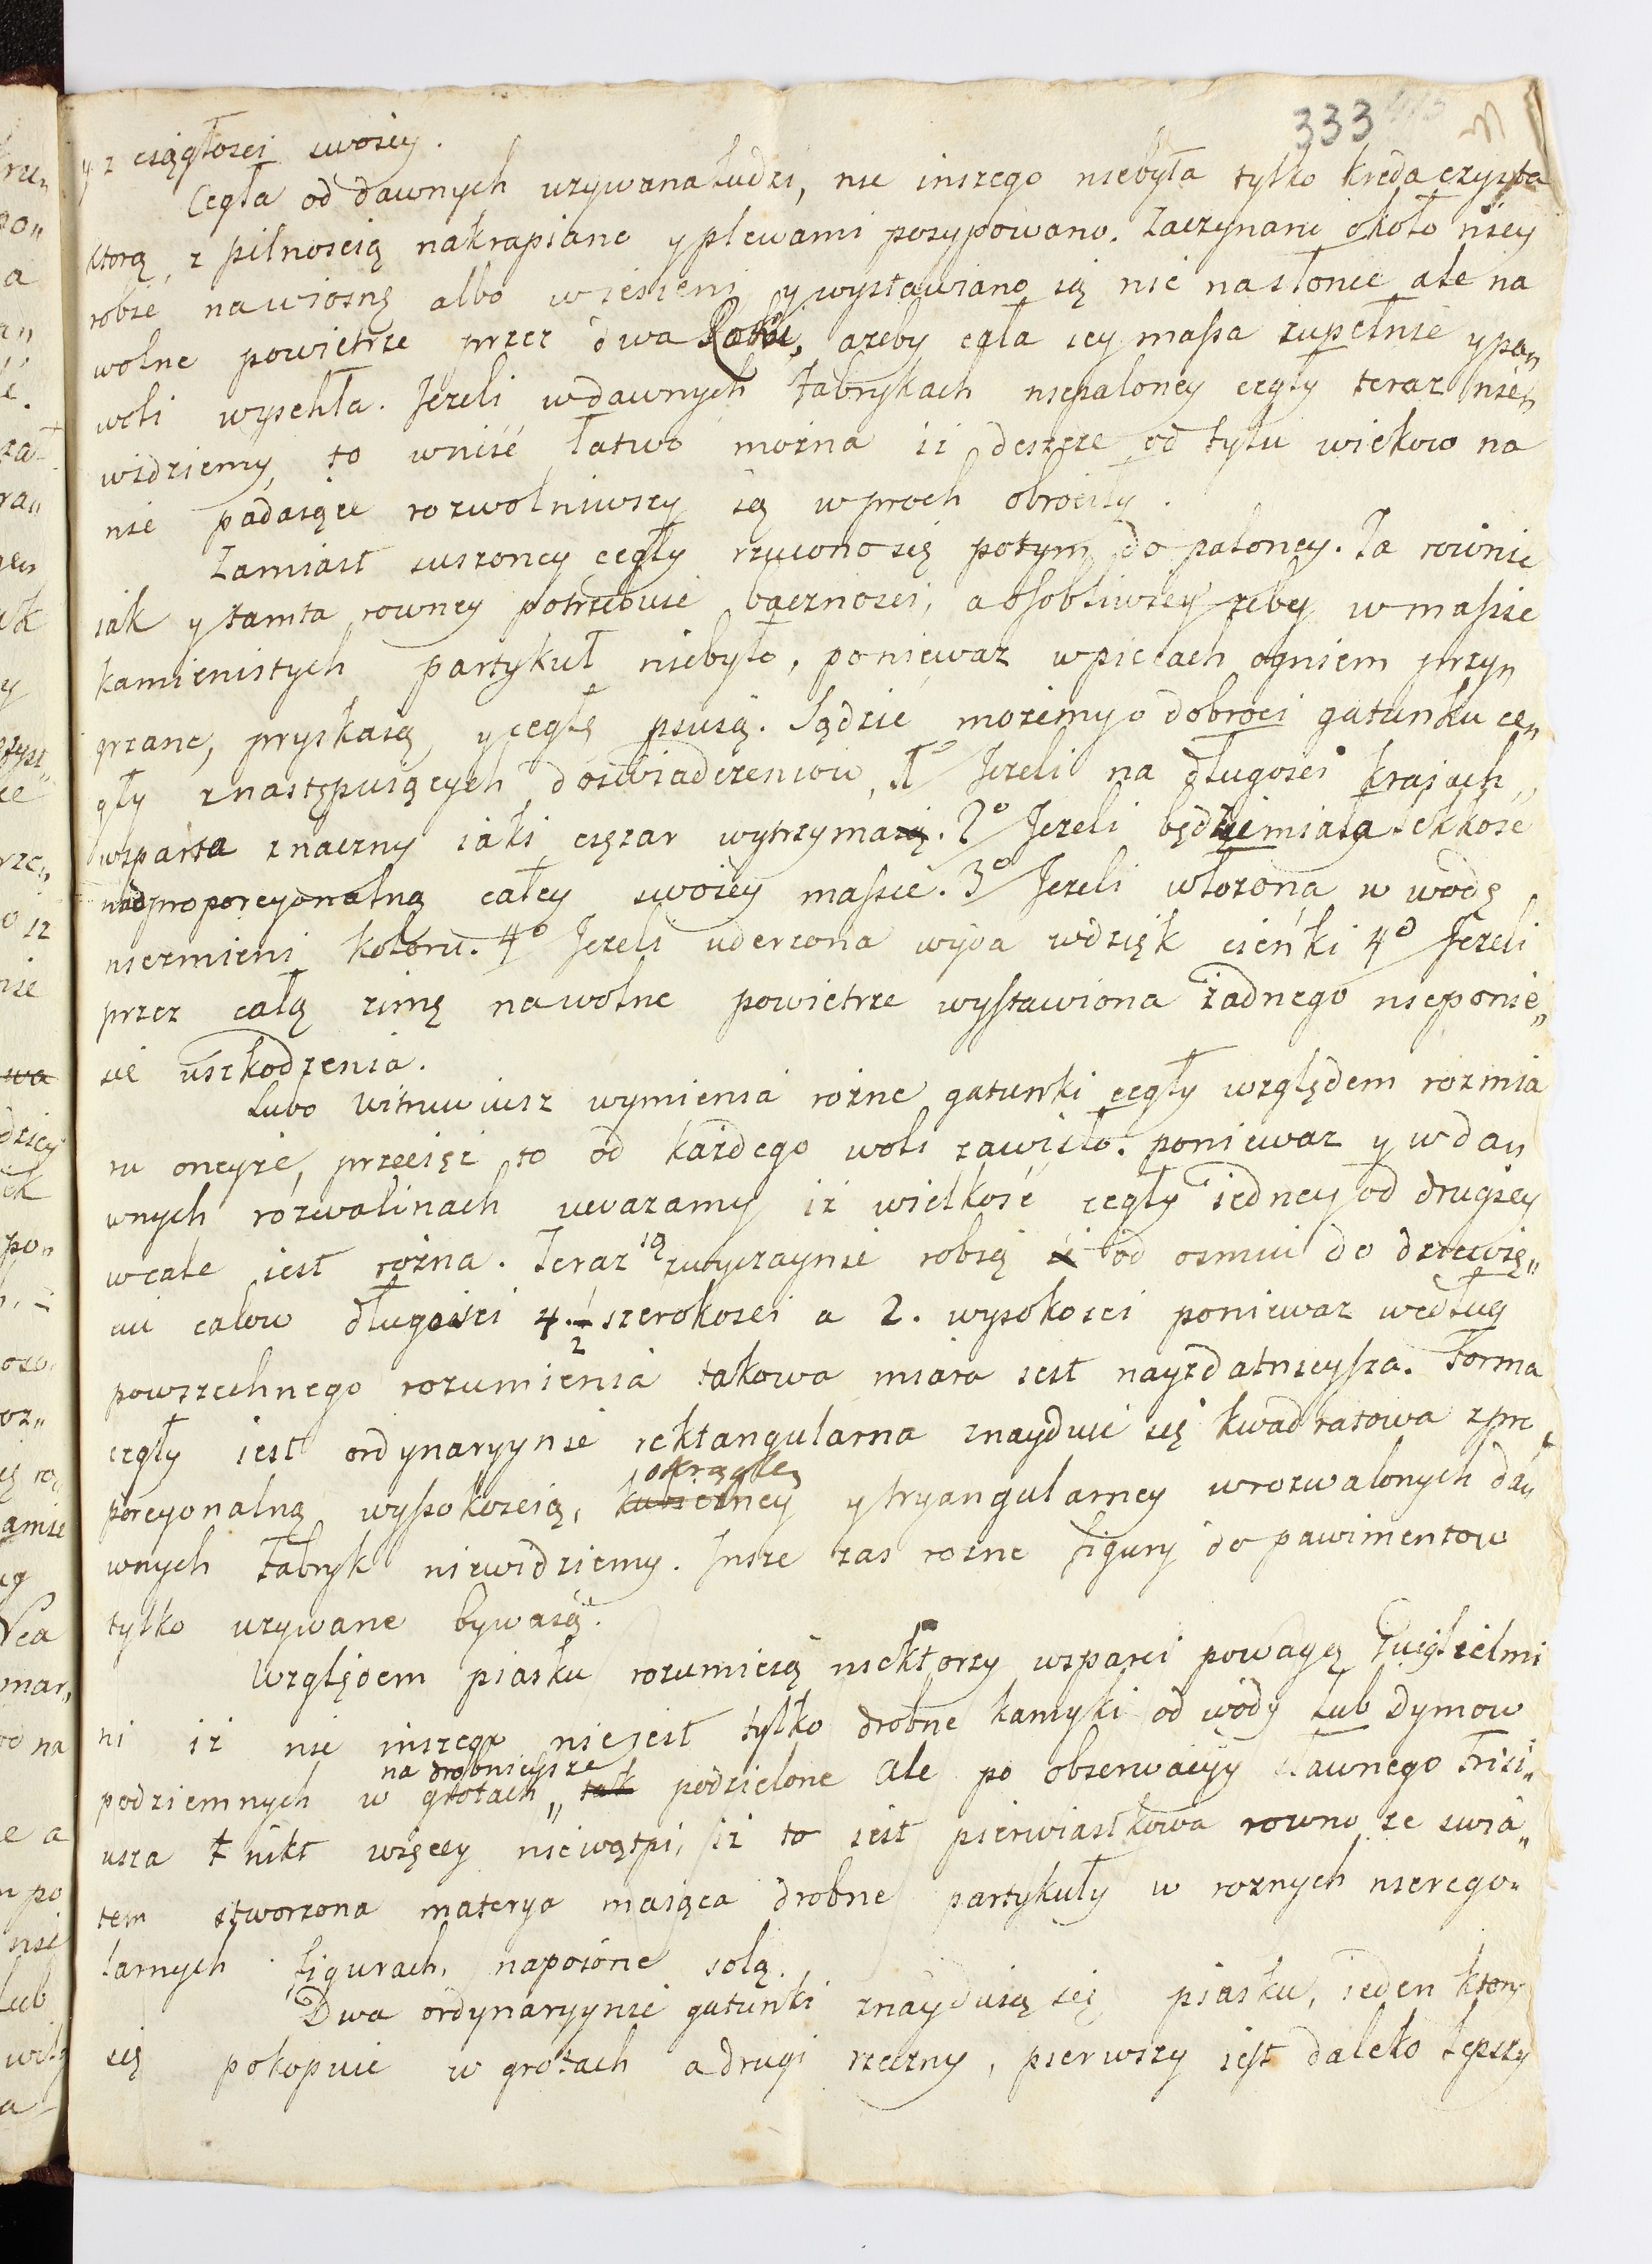 333
y z ciągłosci swoiey.
Cegła od dawnych uzywana ludzi, nie inszego niebyła tylko kreda czysta
ktorą, z pilnoscią nakrapiano y plewami posypowano. Zaczynano około niey
robic na wiosnę albo w iesieni y wystawiano ią nie na słonce ale na
wolne powietrze przez dwa Roki, azeby cała iey massa zupełnie y po„
woli wyschła. Jezeli w dawnych Fabrykach niepaloney cegły teraz nie„
widziemy, to wnisć łatwo można iż deszcze od tylu wiekow na
nie padaiące rozwolniwszy ią w proch obrociły.
Zamiast suszoney cegły rzucono się potym do paloney. Ta rownie
iak y tamta rowney potrzebuie bacznosci, a osobliwiey zeby w massie
kamienistych partykuł niebyło, poniewaz w piecach ogniem przy„
grzane, pryskaią, y cegłę psuią. Sądzić możemy o dobroci gatunku ce„
gły z następuiących doswiadczeniow, 1° Jezeli na długosci kraiach„
wsparta znaczny iaki cięzar wytrzyma. 2° Jezeli będzie miała lekkosc
nadproporcyonalną całey swoiey massie. 3° Jezeli włozona w wodę
niezmieni koloru. 4° Jezeli uderzona wyda wdzięk cieńki 4° Jezeli
przez całą zimę na wolne powietrze wystawiona żadnego nieponie„
sie uszkodzenia.
Lubo Witruwiusz wymienia rożne gatunki cegły względem rozmia
ru oneyże, przecięz to od każdego woli zawisło. poniewaz y w da„
wnych rozwalinach uwazamy iż wielkość cegły iedney od drugiey
wcale iest rożna. Teraz ią zwyczaynie robią od osmiu do dziewię„
ciu calow długosci 4. 1/2 szerokosci a 2. wysokosci poniewaz według
powszechnego rozumienia takowa miara iest nayzdatnieysza. Forma
cegły iest ordynaryynie rektangularna znayduie się kwadratowa z pro„
porcyonalną wysokoscią, kubiczney okrągłey y tryangularney w rozwalonych da„
wnych Fabryk niewidziemy. Insze zas rozne figury do pawimentow
tylko uzywane bywaią.
Względem piasku rozumieią niektorzy wsparci powagą Guiglielmi
ni iz nie inszego nie iest tylko drobne kamyki od wody lub Dymow
podziemnych w grotach „ tak na drobnieysze podzielone ale po obserwacyy sławnego Frisi„
usza nikt więcey niewątpi, iż to iest pierwiastkowa rowno ze swia„
tem stworzona materya maiąca drobne partykuły w roznych nierego„
larnych figurach, napoione solą.
Dwa ordynaryynie gatunki znayduią się piasku, ieden ktory
się pokopuie w grotach a drugi rzeczny, pierwszy iest daleko lepszy